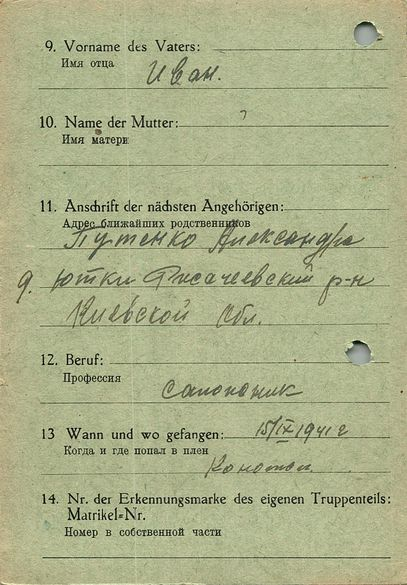 9. Vorname des Vaters:
Имя отца
Иван.
10. Name der Mutter: ?
Имя матери
11. Anschrift der nächsten Angehörigen:
Адрес ближайших родственников
Путенко Александра
д. Ютки р-н
Киевской обл.
12. Beruf:
Профессия
сапожник
13 Wann und wo gefangen: 15/IX 1941 г
Когда и где попал в плен
Конотоп.
14. Nr. der Erkennungsmarke des eigenen Truppenteils:
Matrikel-Nr.
Номер в собственной части